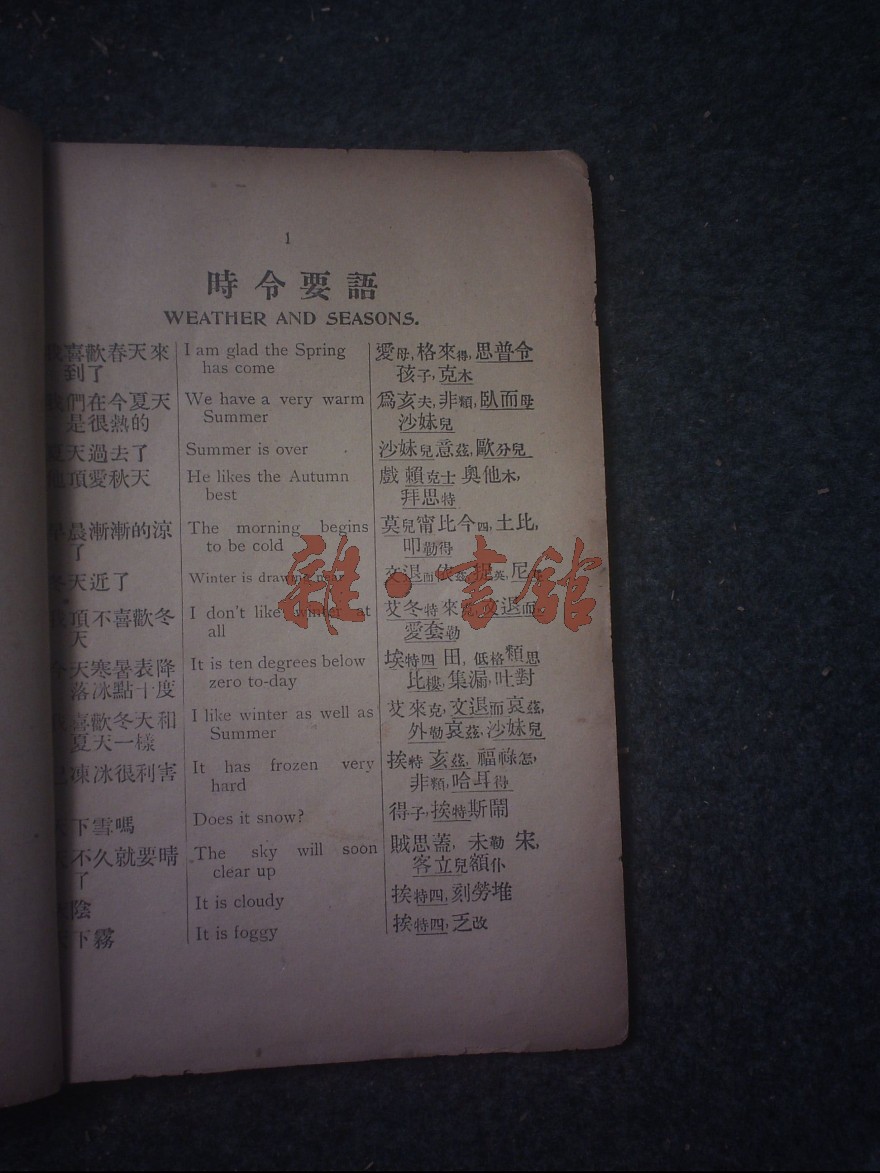 1
時令要語
WEATHER AND SEASONS.
喜歡春天來 I am glad the Spring 愛母,格來得,思普令
到了 has come 孩子,克木
們在今夏天 We have a very warm 爲亥夫,非類,臥而母
是很熱的 Summer 沙妹兒
天過去了 Summer is over 沙妹兒意茲,歐分兒
頂愛秋天 He likes the Autumn 戲賴克士奧他木,
best 拜思特
晨漸漸的涼 The morning begins 莫兒甯比今四,土比,
了 to be cold 叩勒得
天近了 Winter is drawing near 文退而依茲,提英,尼
頂不喜歡冬 I don't like winter at 艾冬特來 文退而
天 all 愛套勒
天寒暑表降 It is ten degrees below 埃特四 田,低格類思
落冰點十度 zero to-day 比樓,集漏,吐對
喜歡冬天和 I like winter as well as 艾來克,文退而哀茲,
夏天一樣 Summer 外勒哀茲,沙妹兒
凍冰很利害 It has frozen very 挨特亥茲,福祿怎,
hard 非類,哈耳得
下雪嗎 Does it snow? 得子,挨特斯鬧
不久就要晴 The sky will soon 賊思蓋,未勒宋,
了 clear up 客立兒額仆
陰 It is cloudy 挨特四,刻勞堆
下霧 It is foggy 挨特四,乏改
雜·書館